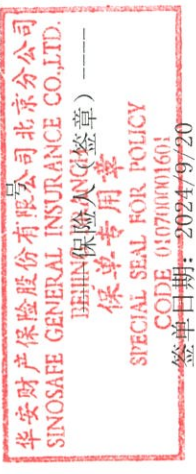 号
华安财产保险股份有限公司北京分公司
SINOSAFE GENERAL INSURANCE CO.,LTD.
BEIJING
保险人（签章）
保单专用章
SPECIAL SEAL FOR POLICY
CODE 010700001601
签单日期：2024/9/20